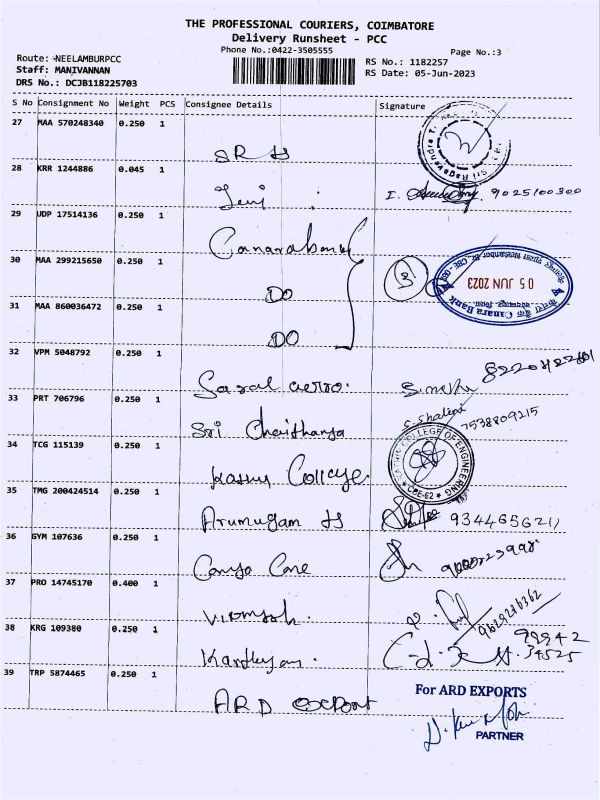 THE PROFESSIONAL COURIERS, COIMBATORE
Delivery Runsheet - PCC
Phone No.:0422-3505555
Page No.:3
Route: NEELAMBURPCC
Staff: MANIVANNAN
DRS No.: DCJB118225703
RS No.: 1182257
RS Date: 05-Jun-2023
S No Consignment No Weight PCS Consignee Details Signature
27 MAA 570248340 0.250 1
SR
28 KRR 1244886 0.045 1
9025100300
29 UDP 17514136 0.250 1
Canarabank
30 MAA 299215650 0.250 1
DO
3
05 JUN 2023
Canara Bank
31 MAA 860036472 0.250 1
DO
32 VPM 5048792 0.250 1
Saral aerro.
33 PRT 706796 0.250 1
Sri Chaithanya
S. Shalini 7538809215
34 TCG 115139 0.250 1
College
COLLEGE OF ENGINEERING
CBE-62
35 TMG 200424514 0.250 1
Arumugam
9344656211
36 GYM 107636 0.250 1
Care
37 PRO 14745170 0.400 1
38 KRG 109380 0.250 1
99942
34525
39 TRP 5874465 0.250 1
ARD export
For ARD EXPORTS
PARTNER